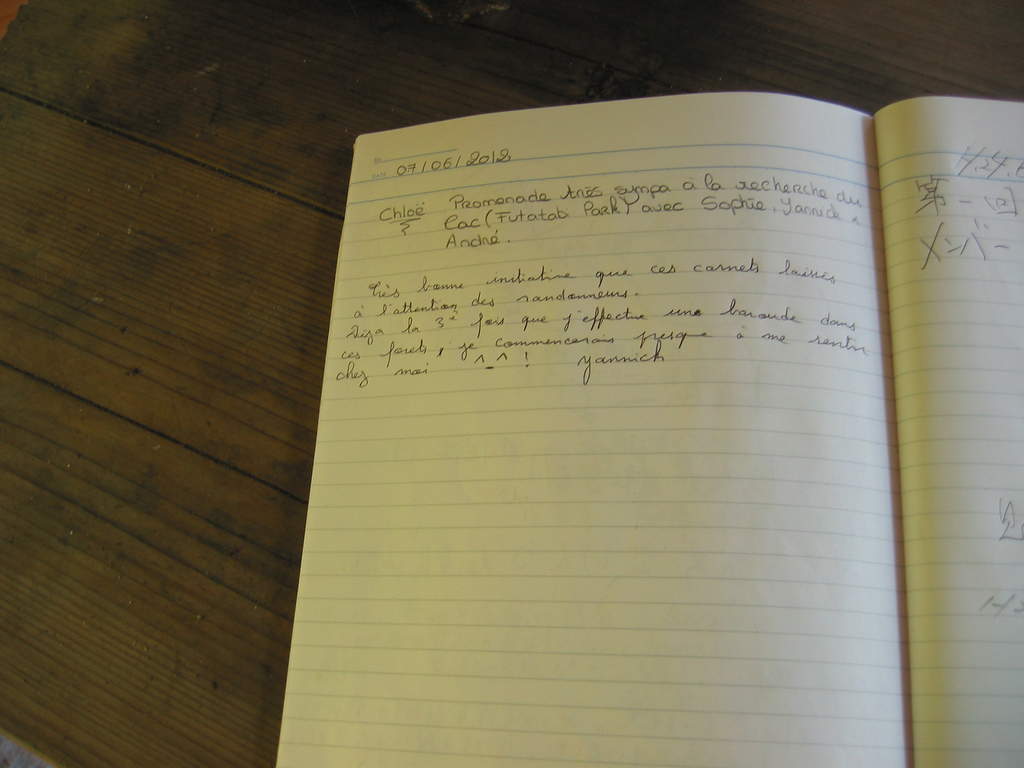 07/06/2012
Chloë Promenade très sympa à la recherche du
Lac (Futatab Park) avec Sophie, Yannick &
André.
Très bonne initiative que ces carnets laissés
à l'attention des randonneurs.
Déja la 3e fois que j'effectue une baroude dans
ces forêts, je commencerais presque à me sentir
chez moi ^_^ ! Yannick
第一回
メンバー